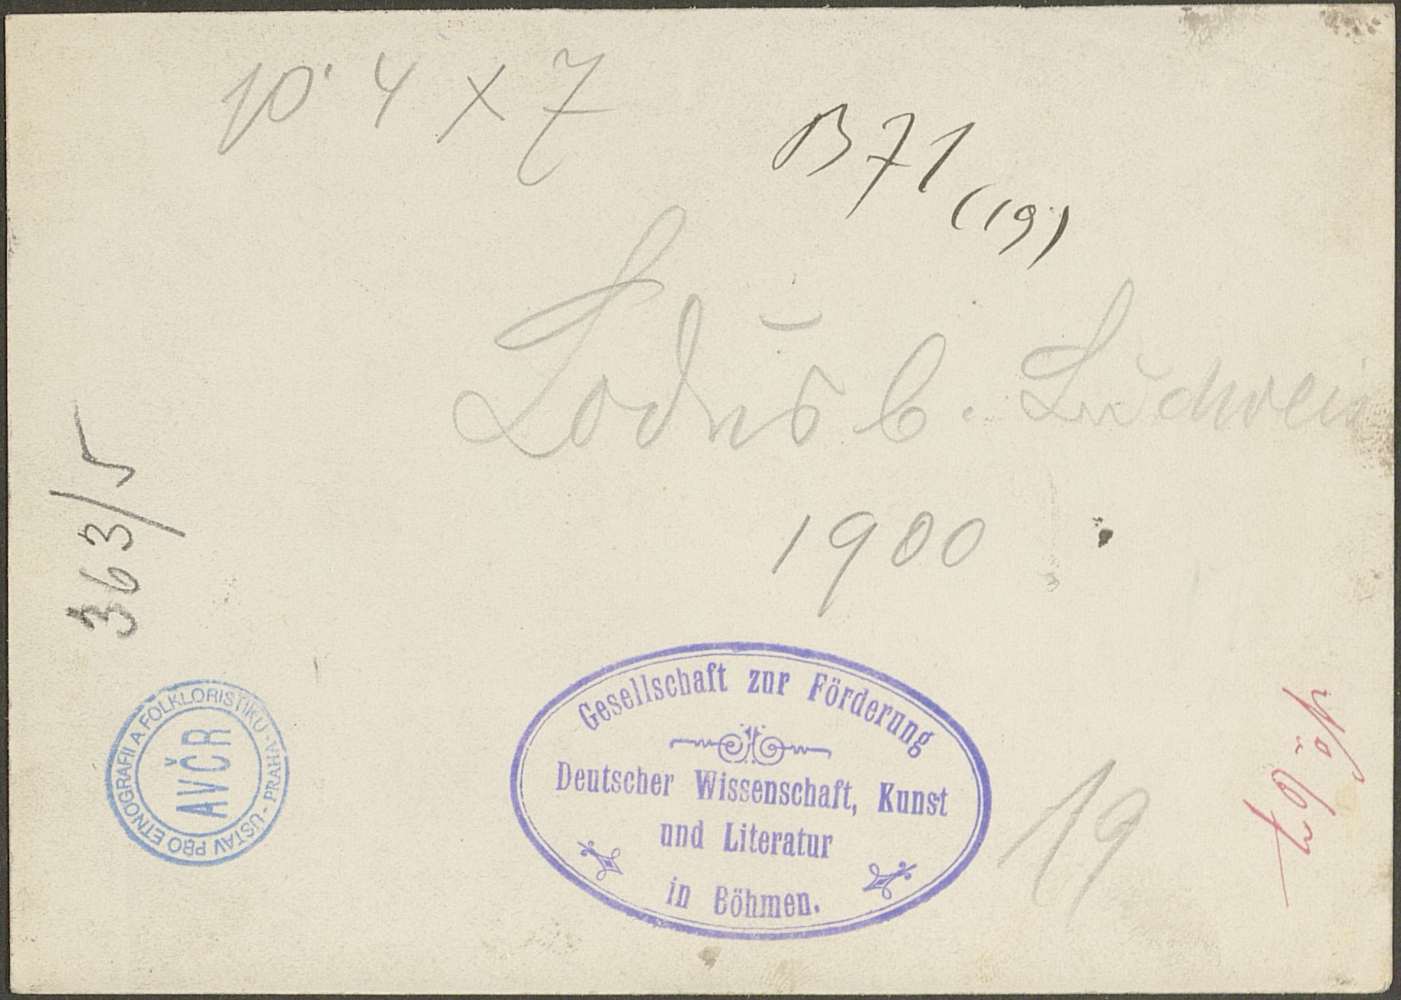 10·4 x 7
B71
(19)
Lodus b. Luchrein
1900
363/5
ÚSTAV PRO ETNOGRAFII A FOLKLORISTIKU - PRAHA -
AVČR
Gesellschaft zur Förderung
Deutscher Wissenschaft, Kunst
und Literatur
in Böhmen.
19